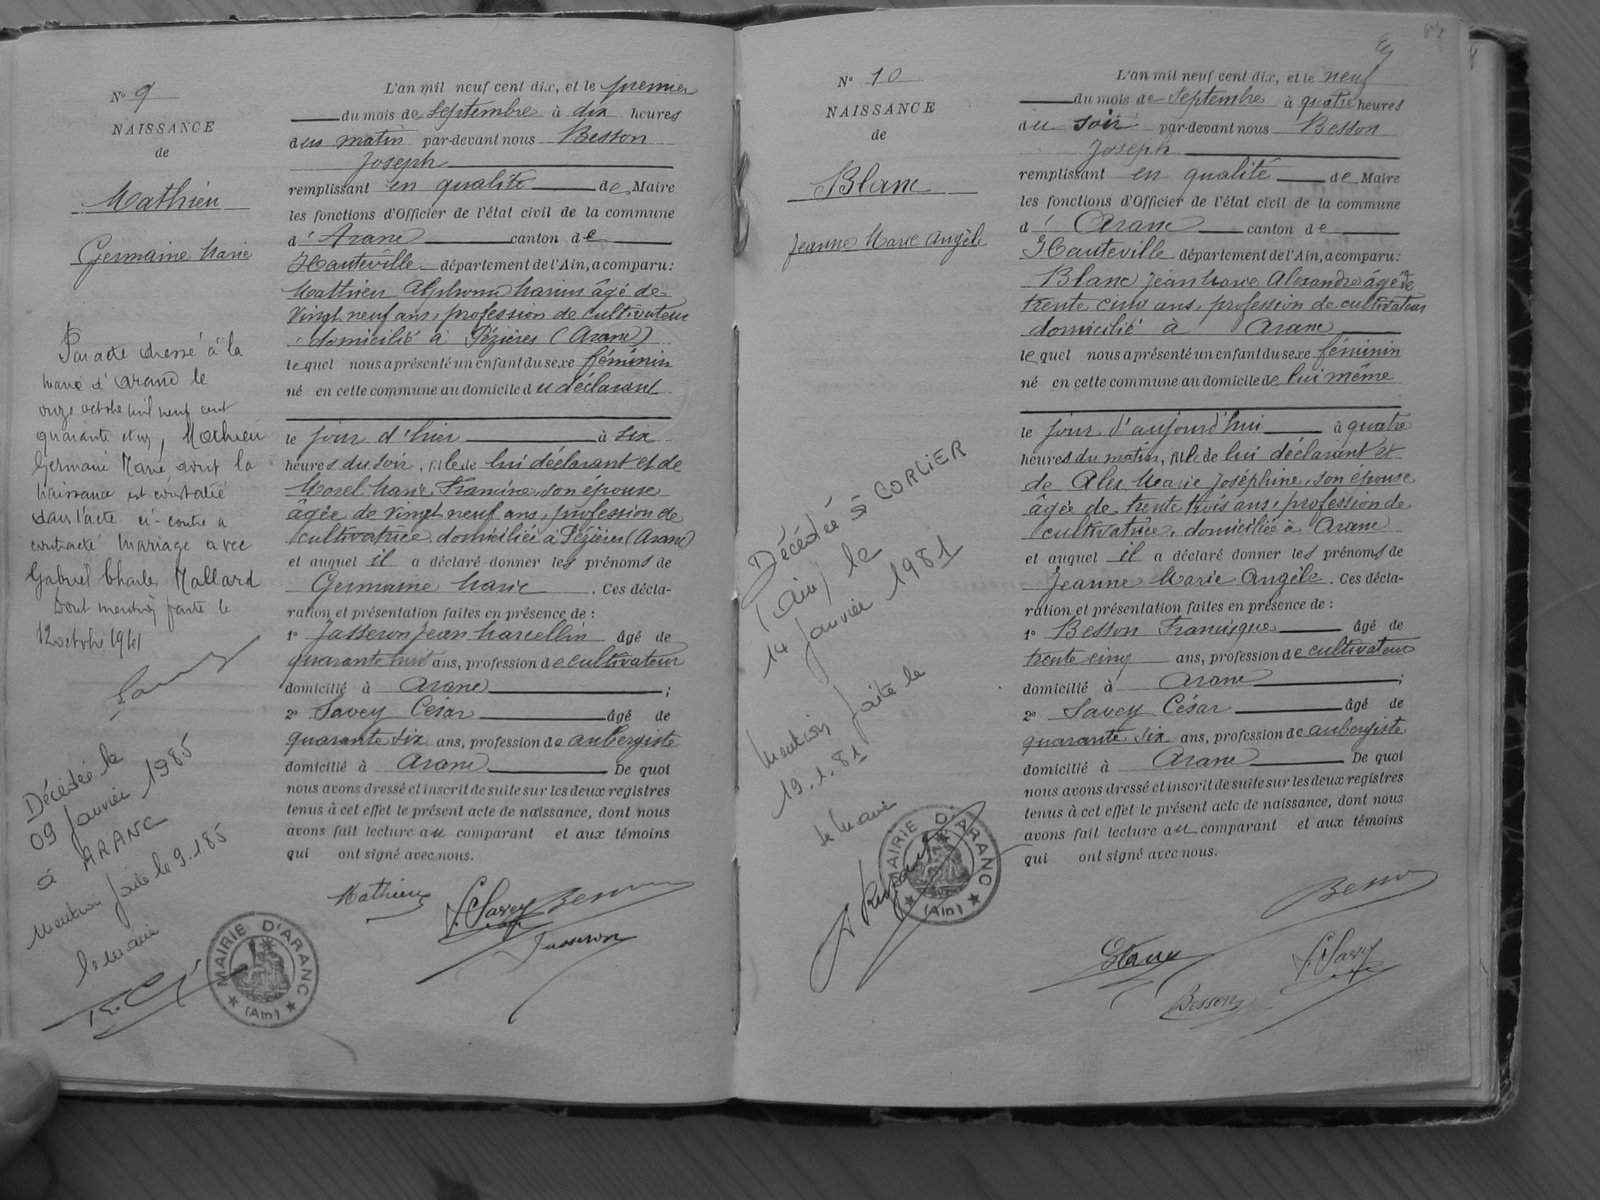 N° 9
NAISSANCE
de
Mathieu
Germaine Marie
Par acte dressé à la
mairie d'Aranc le
onze octobre mil neuf cent
quarante et un, Mathieu
Germaine Marie dont la
naissance est constatée
dans l'acte ci-contre a
contracté mariage avec
Gabriel Charles Mallard
Dont mention faite le
12 octobre 1941
Décédée le
09 Janvier 1985
à ARANC
Mention faite le 9.1.85
le maire
MAIRIE D'ARANC
(Ain)
L'an mil neuf cent dix, et le premier
du mois de Septembre à dix heures
du matin par-devant nous Besson
Joseph
remplissant en qualité de Maire
les fonctions d'Officier de l'état civil de la commune
d'Aranc canton de
Hauteville département de l'Ain, a comparu:
Mathieu Alphonse Marius âgé de
vingt neuf ans, profession de cultivateur
domicilié à Pézières (Aranc)
lequel nous a présenté un enfant du sexe féminin
né en cette commune au domicile du déclarant
le jour d'hier à six
heures du soir, fille de lui déclarant et de
Morel Marie Francine, son épouse
âgée de vingt neuf ans, profession de
cultivatrice, domiciliée à Pézières (Aranc)
et auquel il a déclaré donner les prénoms de
Germaine Marie. Ces décla-
ration et présentation faites en présence de :
1° Jasseron Jean Marcellin âgé de
quarante huit ans, profession de cultivateur
domicilié à Aranc ;
2° Savey César âgé de
quarante six ans, profession de aubergiste
domicilié à Aranc De quoi
nous avons dressé et inscrit de suite sur les deux registres
tenus à cet effet le présent acte de naissance, dont nous
avons fait lecture au comparant et aux témoins
qui ont signé avec nous.
Mathieu C. Savey Besson
Jasseron
N° 10
NAISSANCE
de
Blanc
Jeanne Marie Angèle
Décédée à CORLIER
(Ain) le
14 Janvier 1981
Mention faite le
19.1.81
le Maire
MAIRIE D'ARANC
(Ain)
L'an mil neuf cent dix, et le neuf
du mois de Septembre à quatre heures
du soir par-devant nous Besson
Joseph
remplissant en qualité de Maire
les fonctions d'Officier de l'état civil de la commune
d'Aranc canton de
Hauteville département de l'Ain, a comparu:
Blanc Jean Marie Alexandre âgé de
trente cinq ans, profession de cultivateur
domicilié à Aranc
lequel nous a présenté un enfant du sexe féminin
né en cette commune au domicile de lui même
le jour d'aujourd'hui à quatre
heures du matin, fille de lui déclarant et
de Marie Joséphine, son épouse
âgée de trente trois ans, profession de
cultivatrice, domiciliée à Aranc
et auquel il a déclaré donner les prénoms de
Jeanne Marie Angèle. Ces décla-
ration et présentation faites en présence de :
1° Besson Francisque âgé de
trente cinq ans, profession de cultivateur
domicilié à Aranc ;
2° Savey César âgé de
quarante six ans, profession de aubergiste
domicilié à Aranc De quoi
nous avons dressé et inscrit de suite sur les deux registres
tenus à cet effet le présent acte de naissance, dont nous
avons fait lecture au comparant et aux témoins
qui ont signé avec nous.
Besson
Blanc C. Savey
Besson